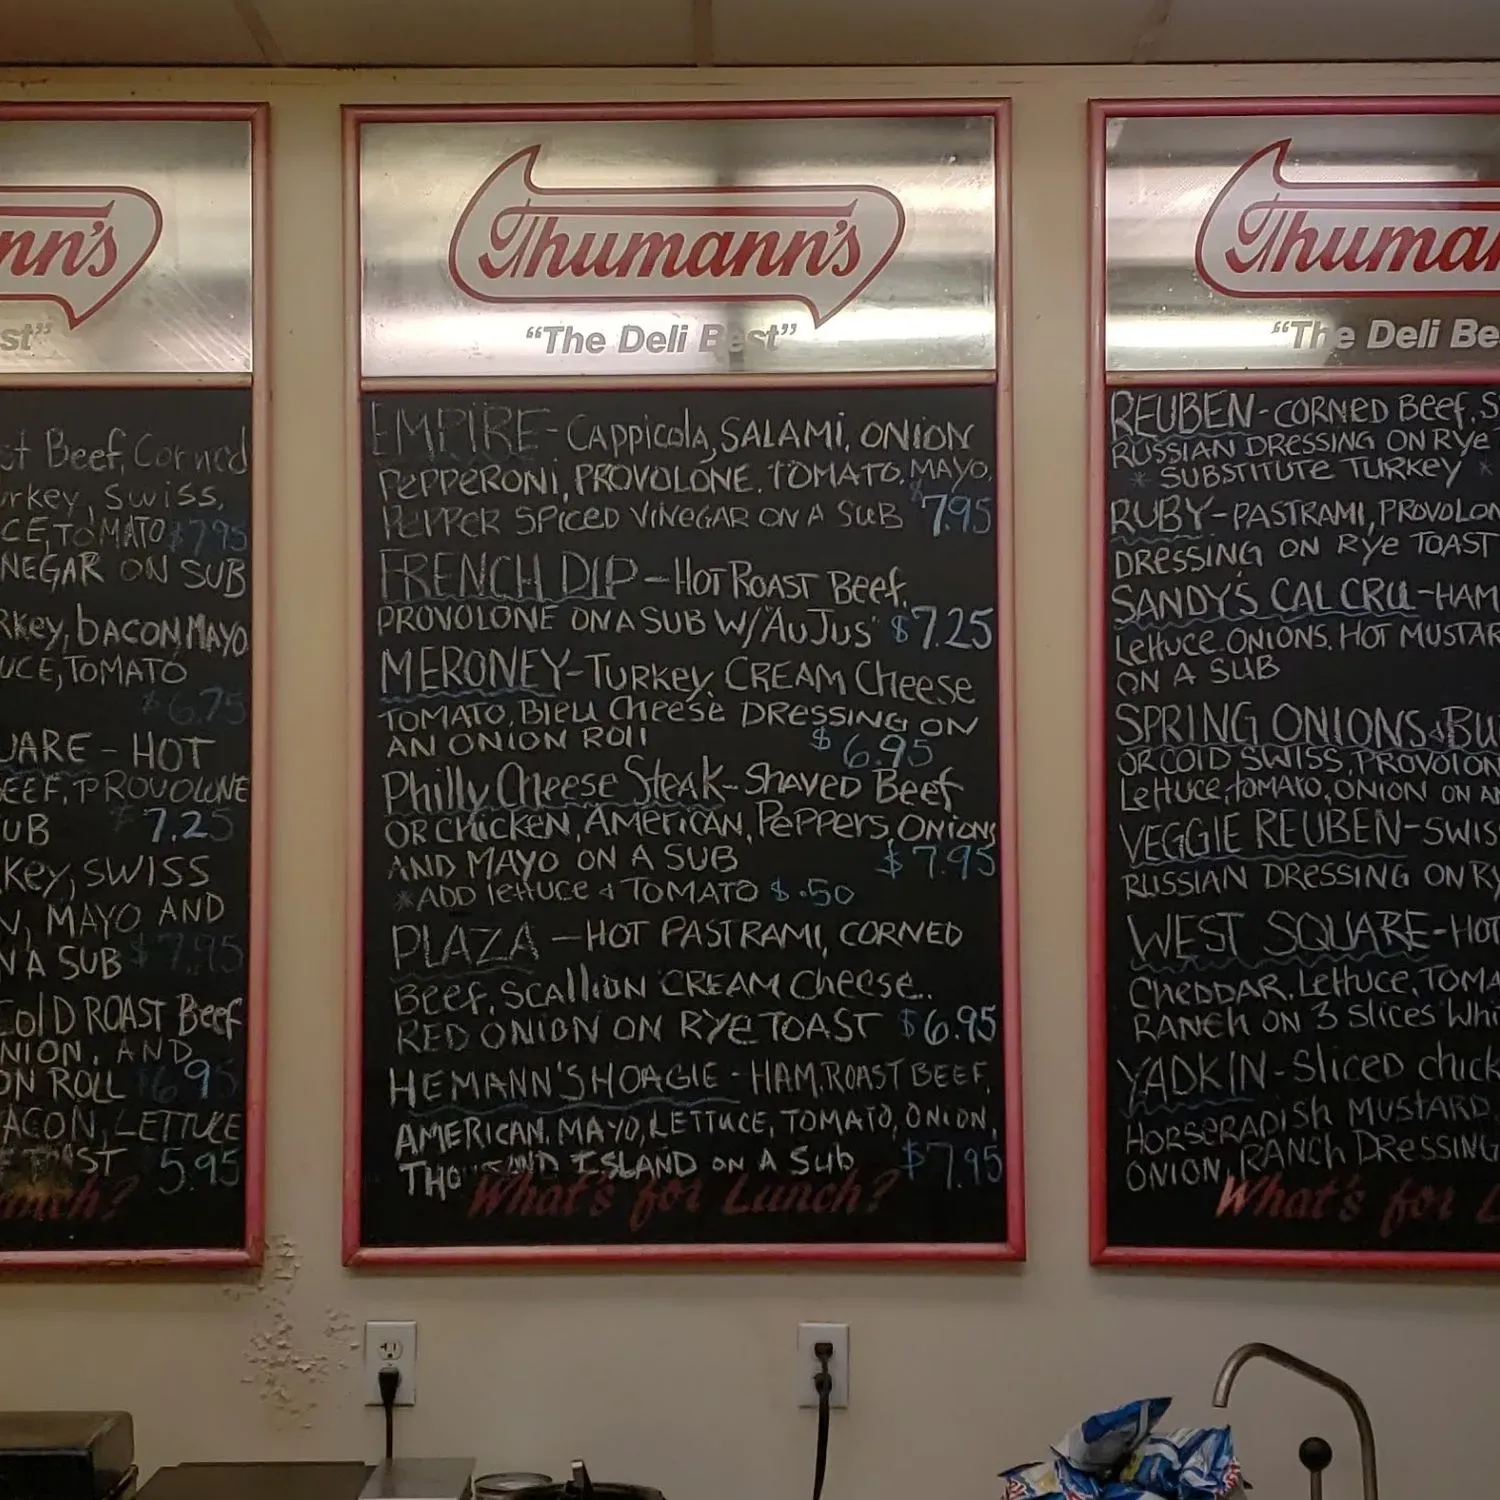 nn's
st"
st Beef, Corned
urkey, Swiss,
CE, TOMATO $7.95
NEGAR ON SUB
RKey, bACON, MAYO
UCE, TOMATO
$6.75
UARE - HOT
BEEF, PROVOLONE
UB 7.25
Key, SWISS
N, MAYO AND
N A SUB $7.95
COlD ROAST Beef
NION, AND
ON ROLL $6.95
BACON, LETTUCE
TOAST 5.95
unch?
Thumann's
"The Deli Best"
EMPIRE - Cappicola, SALAMi, ONION
PePPERONi, PROVOLONE, TOMATO, MAYO,
PEPPER SPICED VINEGAR ON A SUB $7.95
FRENCH DIP - HOT ROAST Beef,
PROVOLONE ON A SUB W/ "AuJus" $7.25
MERONEY - TURKey, CREAM Cheese
TOMATO, BlEU CHeese DRESSING ON
AN ONION ROll $6.95
Philly Cheese Steak - SHAVED Beef
OR CHICKEN, AMERICAN, PePPERS, ONIONS
AND MAYO ON A SUB $7.95
*ADD lettuce & TOMATO $.50
PLAZA - HOT PASTRAMI, CORNED
Beef, SCALLION CREAM Cheese,
RED ONION ON RYe TOAST $6.95
HEMANN'S HOAGIE - HAM, ROAST BEEF,
AMERICAN, MAYO, LETTUCE, TOMATO, ONION,
THOUSAND ISLAND ON A SUb $7.95
What's for Lunch?
Thuman
"The Deli Be
REUBEN - CORNED BeeF, S
RUSSIAN DRESSING ON RYe
* SUBSTITUTE TURKEY *
RUBY - PASTRAMI, PROVOLON
DRESSING ON RYe TOAST
SANDY'S CAL CRU - HAM
Lettuce, ONIONS, HOT MUSTAR
ON A SUB
SPRING ONIONS & BU
OR COlD SWISS, PROVOLON
LeTTuce, TOMATO, ONION ON A
VEGGIE REUBEN - SWIS
RUSSIAN DRESSING ON RY
WEST SQUARE - HOT
CHeDDAR, Lettuce, TOMA
RANCH ON 3 Slices Whi
YADKIN - Sliced chick
HORSERADISH MUSTARD,
ONION, RANCH DRESSING
What's for L